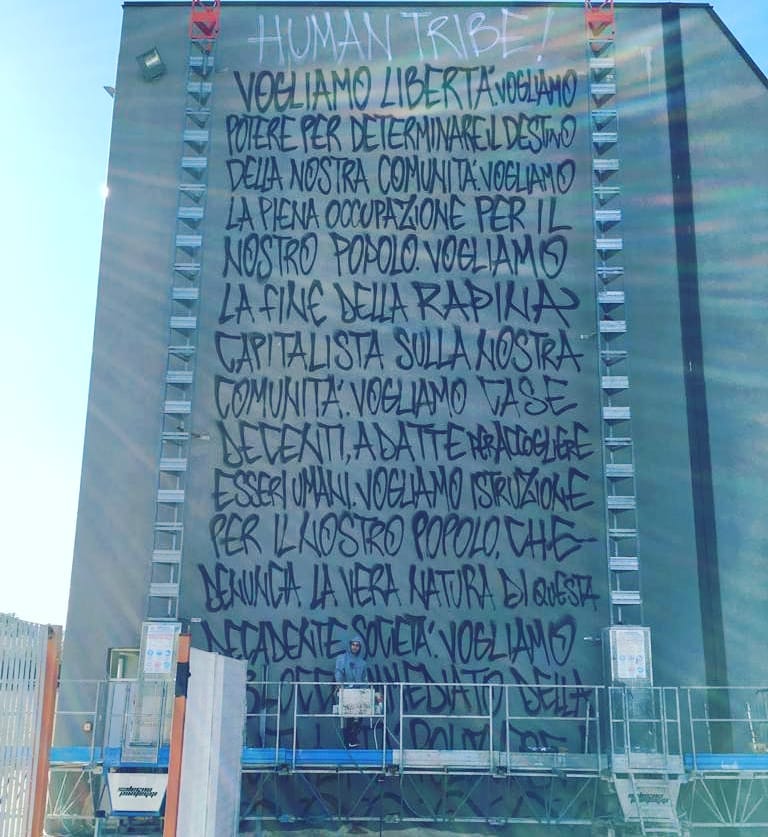 HUMAN TRIBE!
VOGLIAMO LIBERTÀ. VOGLIAMO
POTERE PER DETERMINARE IL DESTINO
DELLA NOSTRA COMUNITÀ. VOGLIAMO
LA PIENA OCCUPAZIONE PER IL
NOSTRO POPOLO. VOGLIAMO
LA FINE DELLA RAPINA
CAPITALISTA SULLA NOSTRA
COMUNITÀ. VOGLIAMO CASE
DECENTI, ADATTE PER ACCOGLIERE
ESSERI UMANI. VOGLIAMO ISTRUZIONE
PER IL NOSTRO POPOLO, CHE
DENUNCIA LA VERA NATURA DI QUESTA
DECADENTE SOCIETÀ. VOGLIAMO
DELLA